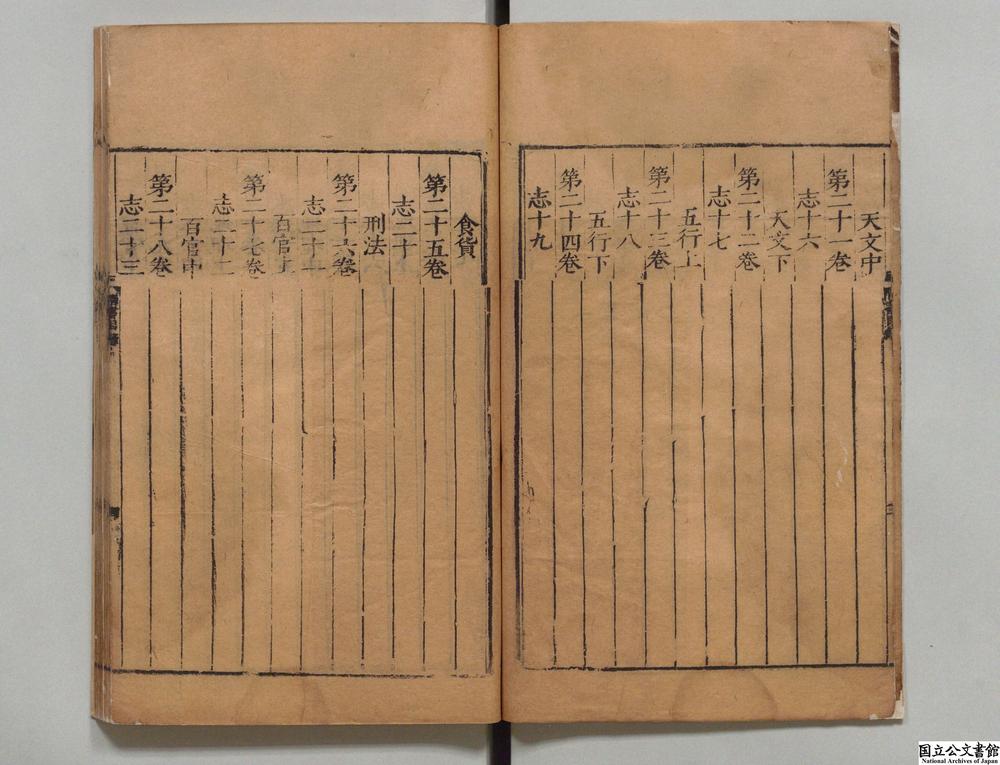 天文中
第二十一卷
志十六
天文下
第二十二卷
志十七
五行上
第二十三卷
志十八
五行下
第二十四卷
志十九
食貨
第二十五卷
志二十
刑法
第二十六卷
志二十一
百官上
第二十七卷
志二十二
百官中
第二十八卷
志二十三
国立公文書館
National Archives of Japan